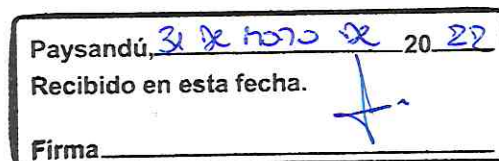 Paysandú, 31 DE MAYO DE 20 22
Recibido en esta fecha.
Firma